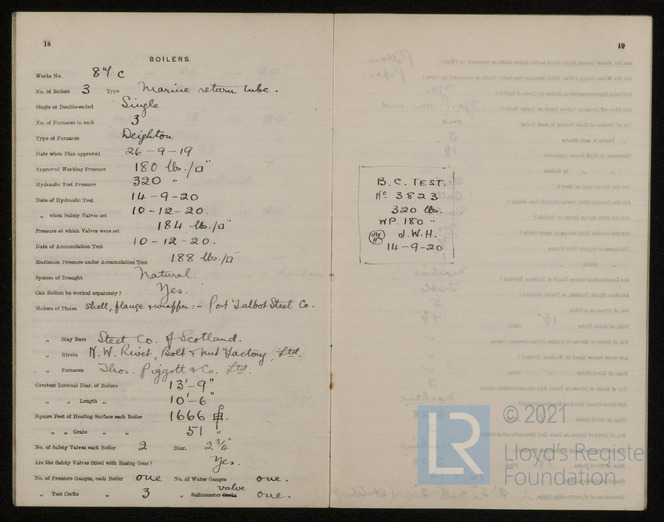 18
BOILERS.
Works No. 847 C
No. of Boilers 3 Type Marine return tube.
Single or Double-ended Single
No. of Furnaces in each 3
Type of Furnaces Deighton
Date when Plan approved 26-9-19
Approved Working Pressure 180 lbs./□"
Hydraulic Test Pressure 320 "
Date of Hydraulic Test 14-9-20
" when Safety Valves set 10-12-20.
Pressure at which Valves were set 184 lbs./□"
Date of Accumulation Test 10-12-20.
Maximum Pressure under Accumulation Test 188 lbs./□"
System of Draught Natural.
Can Boilers be worked separately? Yes.
Makers of Plates Shell, flange & wrapper:- Port Talbot Steel Co.
" Stay Bars Steel Co. of Scotland.
" Rivets N.W. Rivet, Bolt & Nut Factory, Ltd.
" Furnaces Thos. Piggott & Co. Ltd.
Greatest Internal Diar. of Boilers 13'-9"
" " Length " 10'-6"
Square Feet of Heating Surface each Boiler 1666
" " Grate " 51
No. of Safety Valves each Boiler 2 Diar. 2¾"
Are the Safety Valves fitted with Easing Gear? Yes.
No. of Pressure Gauges, each Boiler one No. of Water Gauges one.
" Test Cocks " 3 " Salinometer Cocks valve one.
19
B.C. TEST.
No 3823
320 lbs.
WP. 180 "
J.W.H.
14-9-20
LR
© 2021
Lloyd's Register
Foundation